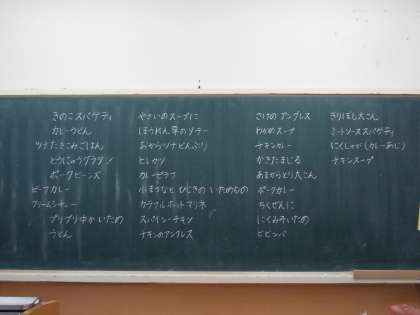 きのこスパゲティ
カレーうどん
ツナたきこみごはん
とうにゅうグラタン
ポークビーンズ
ビーフカレー
クリームシチュー
プリプリ中かいため
うどん
やさいのスープに
ほうれん草のソテー
おからツナどんぶり
ヒレカツ
カレーピラフ
小まつなと ひじきの いためもの
カラフルホットマリネ
スパイシーチキン
チキンのアングレス
さけの アングレス
わかめスープ
チキンカレー
かきたまじる
あまからとり大こん
ポークカレー
ちくぜんに
にくみそいため
ビビンバ
きりぼし大こん
ミートソーススパゲティ
にくじゃが(カレーあじ)
チキンスープ